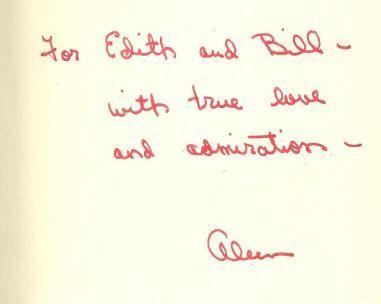 For Edith and Bill –
with true love
and admiration –